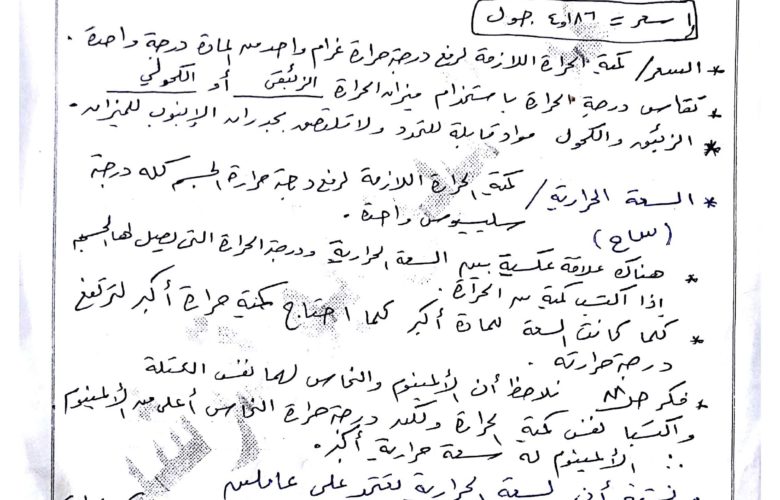 ١ سعر = ٤٫١٨٦ جول
* السعر / كمية الحرارة اللازمة لرفع درجة حرارة غرام واحد من المادة درجة واحدة .
* تقاس درجة الحرارة باستخدام ميزان الحرارة الزئبقي أو الكحولي
* الزئبق والكحول مواد قابلة للتمدد ولا تلتصق بجدران الإنبوب للميزان .
* السعة الحرارية / كمية الحرارة اللازمة لرفع درجة حرارة الجسم كله درجة
سليسيوس واحدة .
(سماح)
* هناك علاقة عكسية بين السعة الحرارية ودرجة الحرارة التي يصل لها الجسم
إذا اكتسب كمية من الحرارة .
* كلما كانت السعة للمادة أكبر كلما احتاج كمية حرارة أكبر لترتفع
درجة حرارته .
* فكر ص٨٨ نلاحظ أن الألمينيوم والنحاس لهما نفس الكتلة
واكتسبا نفس كمية الحرارة ولكن درجة حرارة النحاس أعلى من الألمينيوم
∴ الألمينيوم له سعة حرارية أكبر .
أن السعة الحرارية تعتمد على عاملين